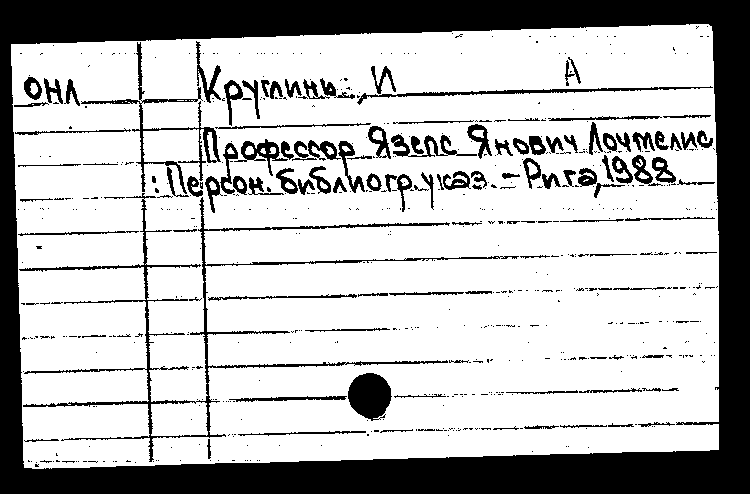 ОНЛ Круглинь, И А
Профессор Язепс Янович Лочмелис
: Персон. библиогр. указ. – Рига, 1988.